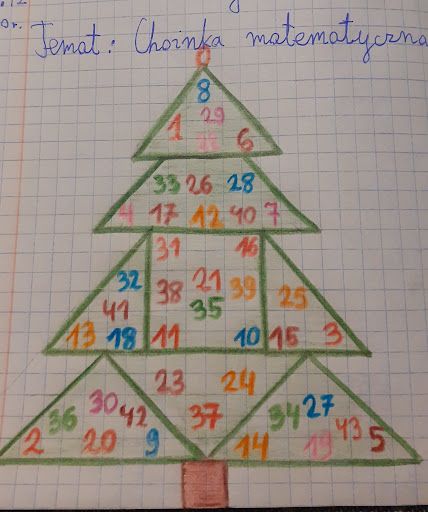 Or.
Temat: Choinka matematyczna
8
1 29
22 6
33 26 28
4 17 12 40 7
31 16
32 38 21 39 25
41 35
13 18 11 10 15 3
23 24
30 42 37 34 27
36 43
2 20 9 14 19 5